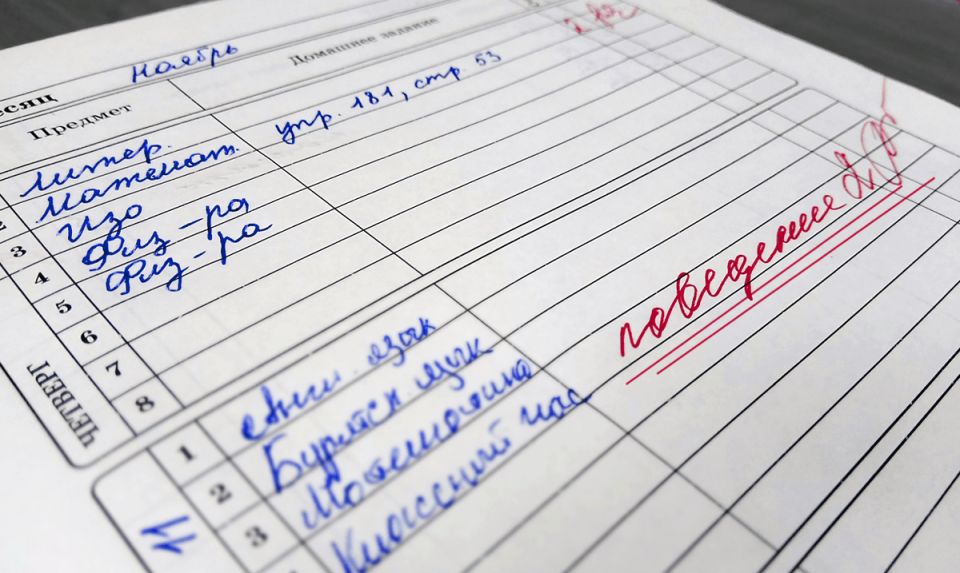 есяц Ноябрь
Предмет Домашнее задание
литер.
2 Математ. упр. 181, стр. 53
3 Изо
4 Физ-ра
5 Физ-ра
6
7
8
ЧЕТВЕРГ
поведение
1 Англ. язык
2 Бурятск. язык
3 Математика
Классный час
11